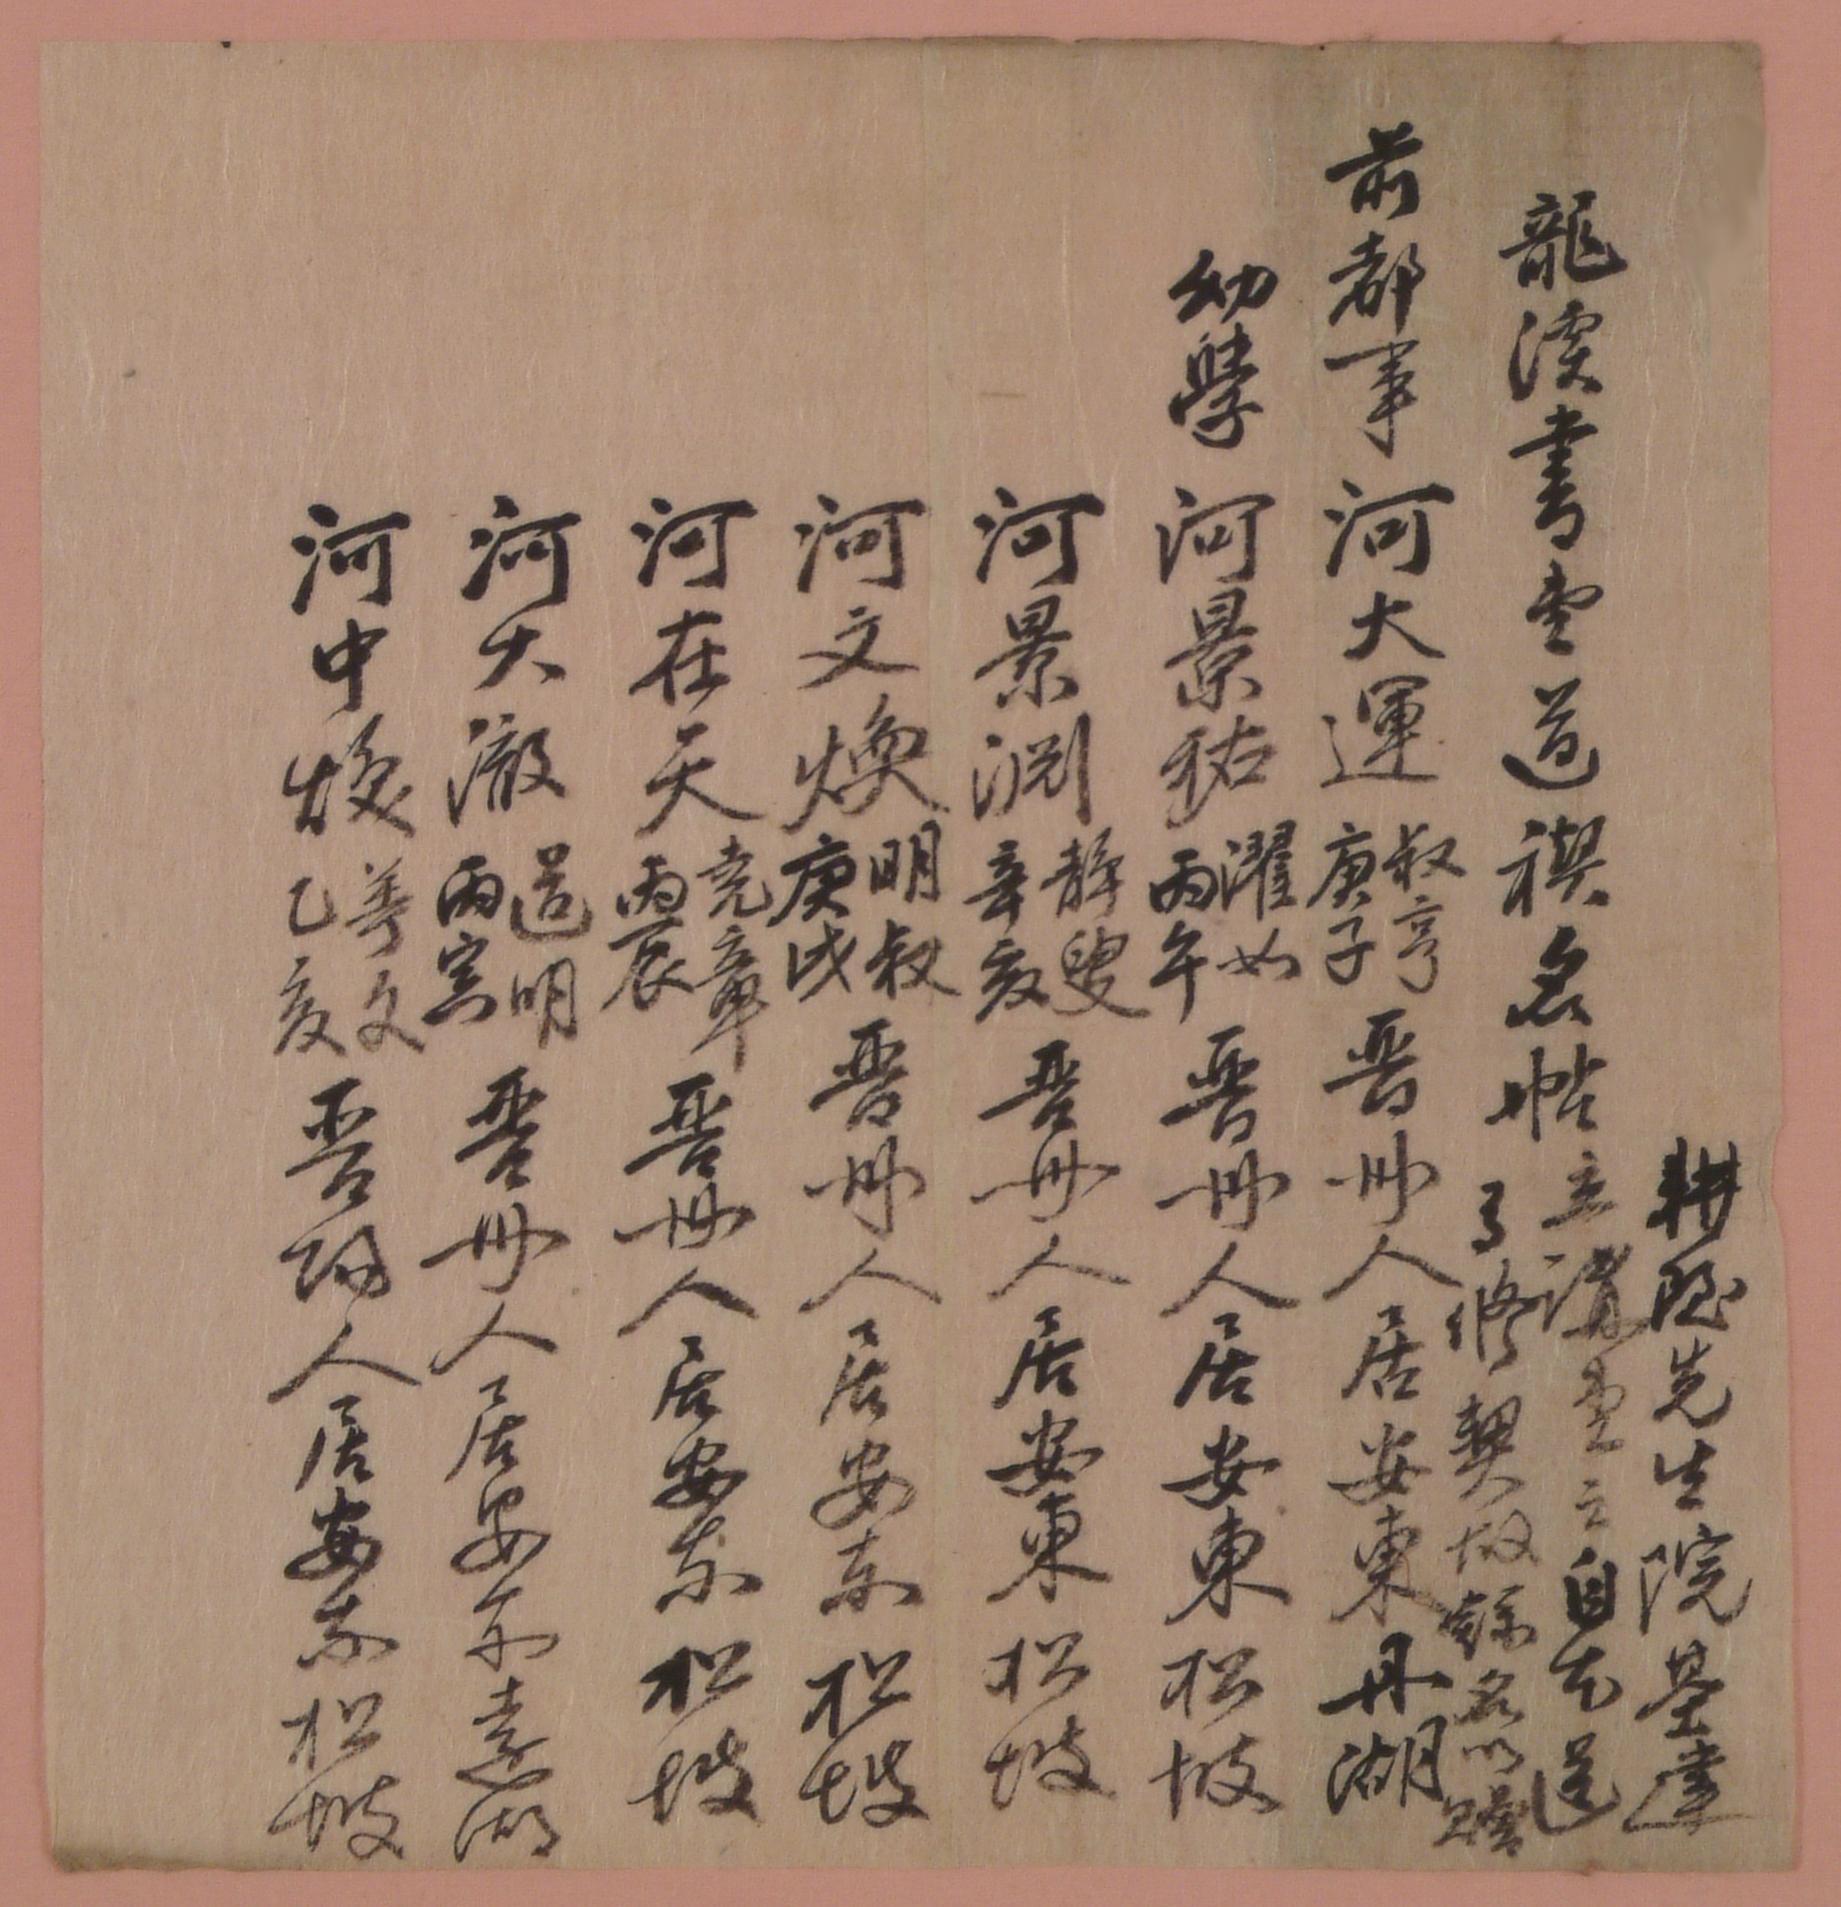 龍溪書堂道禊名帖
耕隱先生院基建
立講堂之自古道
了修契故錄名以
前都事 河大運 叔亨 庚子 晋州人居安東丹湖
幼學 河景祐 濯如 丙午 晋州人居安東松坡
河景淵 靜叟 辛亥 晋州人居安東松坡
河文煥 明叔 庚戌 晋州人居安東松坡
河在天 堯章 丙辰 晋州人居安东松坡
河大澈 道明 丙寅 晋州人居安东臺湖
河中煥 善文 乙亥 晋陽人居安东松坡